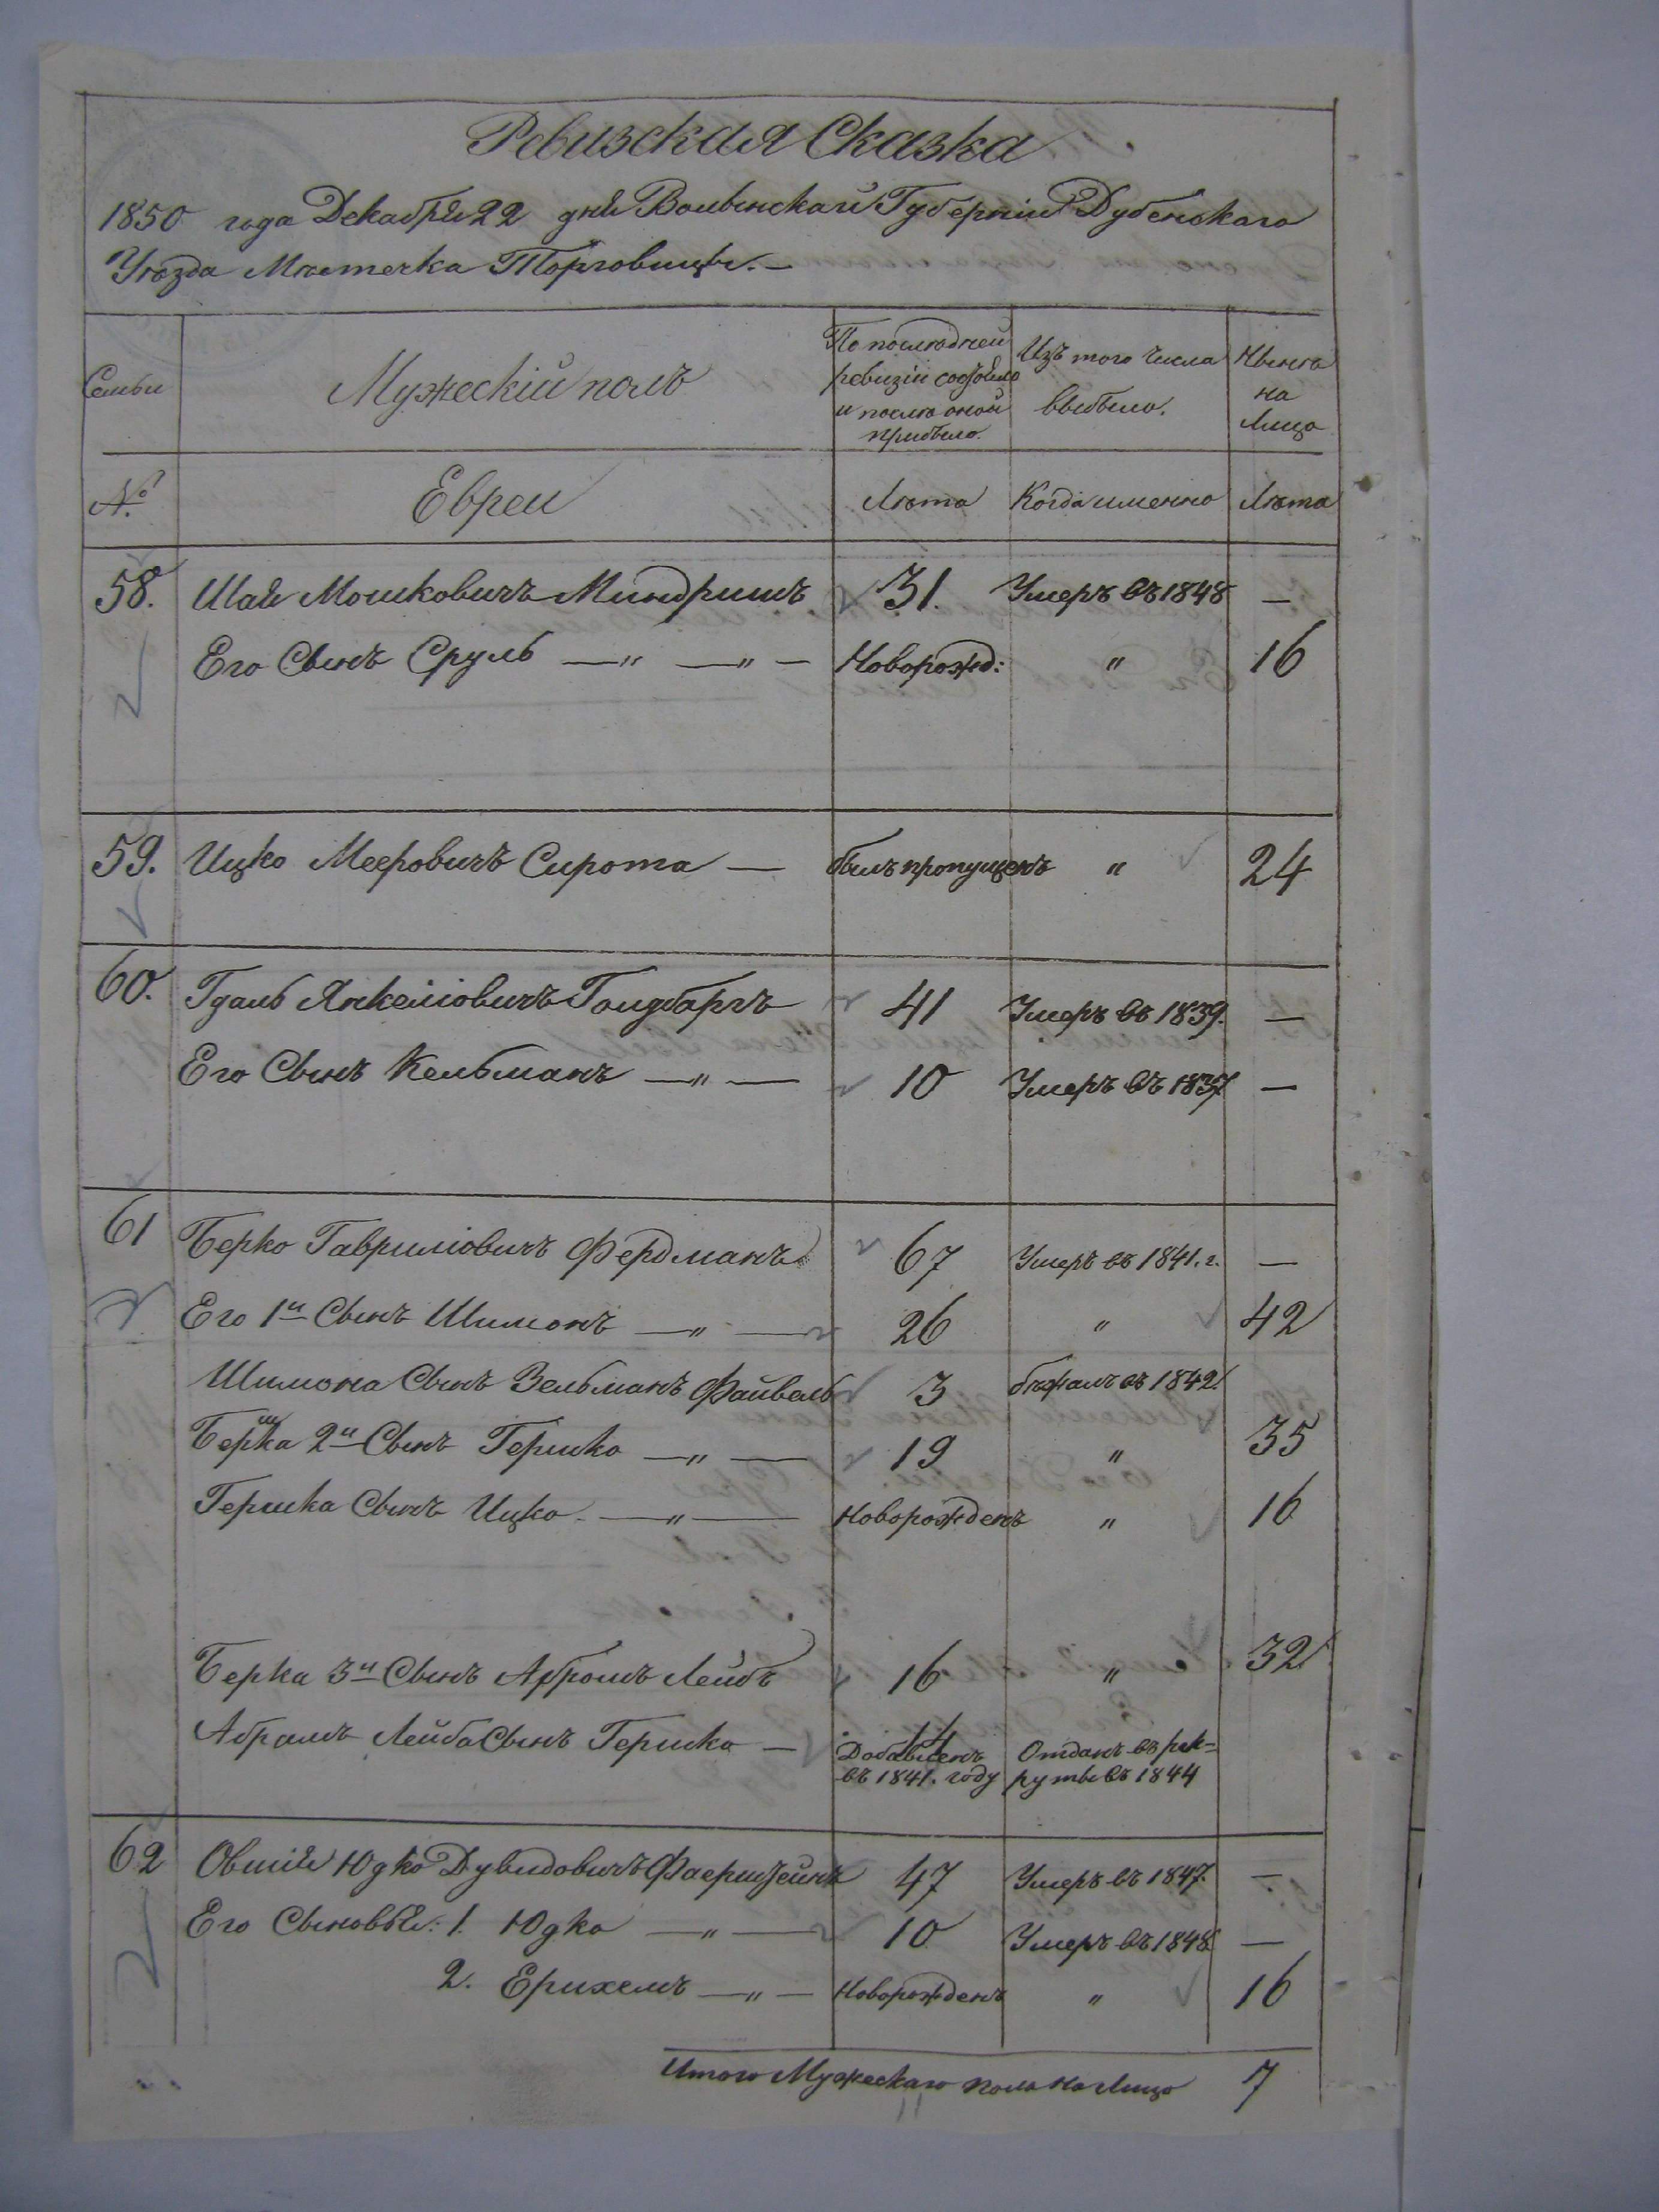 Ревизская Сказка
1850 года Декабря 22 дня Волынской Губерніи Дубенскаго
Уѣзда Мѣстечка Торговицы. —
Семьи
Мужескій полъ
По послѣдней
ревизіи состояло
и послѣ оной
прибыло.
Изъ того числа
выбыло.
Нынѣ
на
Лицо
№
Евреи
Лѣта
Когда именно
Лѣта
58. Шая Мошковичъ Миндришъ 31. Умеръ въ 1848 —
Его Сынъ Сруль — " — " — Новорожд: " 16
59. Ицко Мееровичъ Сирота — былъ пропущенъ " 24
60. Гдаль Янкеліовичъ Голдбаргъ 41 Умеръ въ 1839. —
Его Сынъ Кельманъ — " — 10 Умеръ въ 1837 —
61 Берко Гавриліовичъ Фердманъ 67 Умеръ въ 1841. г. —
Его 1й Сынъ Шимонъ — " — 26 " 42
Шимона Сынъ Зельманъ Файвель 3 бѣжалъ въ 1842.
Берка 2й Сынъ Гершко — " — 19 " 35
Гершка Сынъ Ицко. — " — Новорожденъ " 16
Берка 3й Сынъ Абромъ Лейбъ 16 " 32
Абрамъ Лейба Сынъ Гершко — 14
Добавленъ Отданъ въ рек=
въ 1841. году руты въ 1844
62 Овшія Юдко Дувидовичъ Фаерштейнъ 47 Умеръ въ 1847. —
Его Сыновья: 1. Юдко — " — 10 Умеръ въ 1848 —
2. Ерихемъ — " — Новорожденъ " 16
Итого Мужескаго пола на Лицо 7